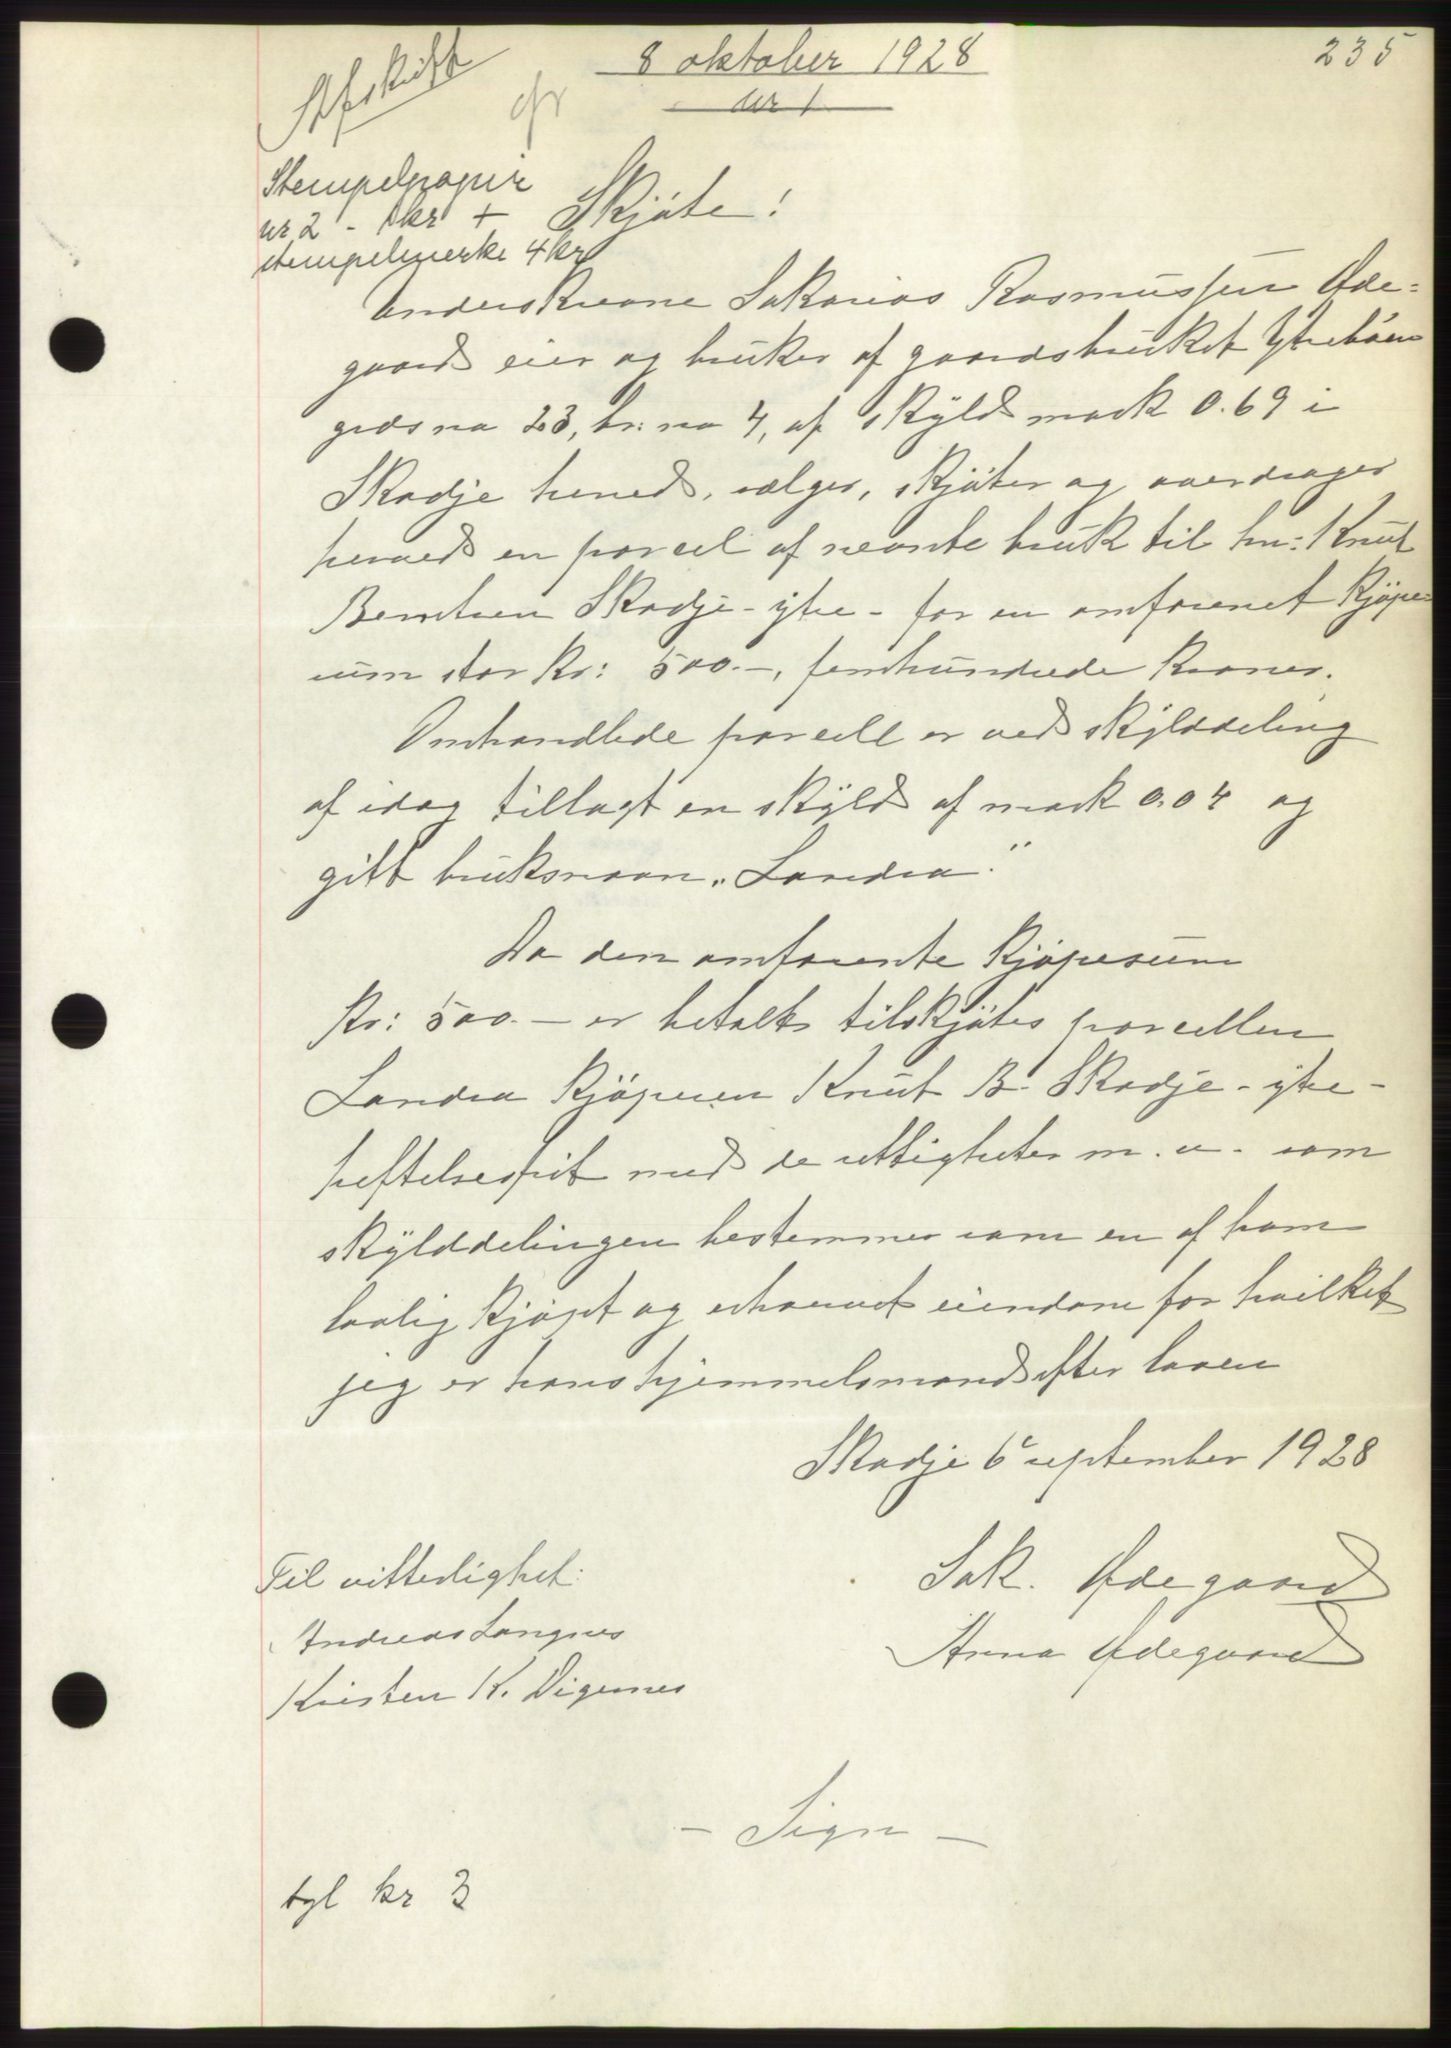 235
8 oktober 1928
nr 1
Afskrift
Stempelpapir
nr 2 - 1 kr +
stempelmerke 4 kr
Skjøte!
Underskrevne Sakarias Rasmussen Øde=
gaard eier og bruker af gaardsbruket Ytrebøen
grdsno 23, br: no 4, af skyld mark 0.69 i
Skodje herred, sælger, skjøter og overdrager
herved en parcel af nevnte bruk til hr: Knut
Berntsen Skodje - ytre - for en omforenet kjøpe=
sum stor kr: 500.-, femhundrede kroner.
Omhandlede parcell er ved skylddeling
af idag tillagt en skyld af mark 0.04 og
gitt bruksnavn „Landra."
Da den omforente kjøpesum
kr: 500.- er betalt tilskjøtes parcellen
Landra kjøperen Knut B. Skodje - ytre -
heftelsesfrit med de rettigheter m. v. som
skylddelingen bestemmer som en af ham
lovlig kjøpt og erhvervet eiendom for hvilket
jeg er hans hjemmelsmand efter loven
Skodje 6 september 1928
Sak. Ødegaard
Anna Ødegaard
Til vitterlighet:
Andreas Langnes
Kristen K. Digernes
- Sign -
tgl kr 3